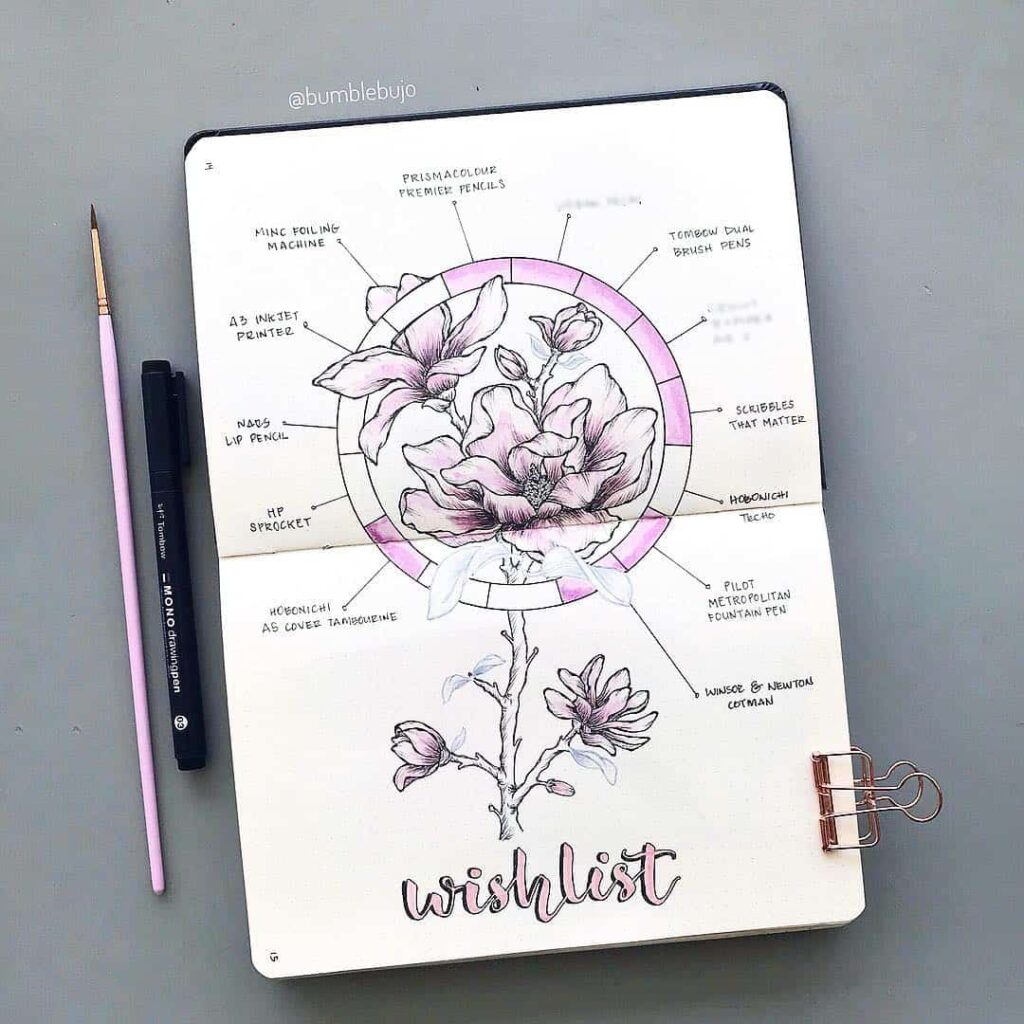 @bumblebujo
14
PRISMACOLOUR
PREMIER PENCILS
MINC FOILING
MACHINE
TOMBOW DUAL
BRUSH PENS
A3 INKJET
PRINTER
SCRIBBLES
THAT MATTER
NARS
LIP PENCIL
HP
SPROCKET
HOBONICHI
TECHO
HOBONICHI
A5 COVER TAMBOURINE
PILOT
METROPOLITAN
FOUNTAIN PEN
WINSOR & NEWTON
COTMAN
wishlist
15
Tombow
MONO drawingpen
03